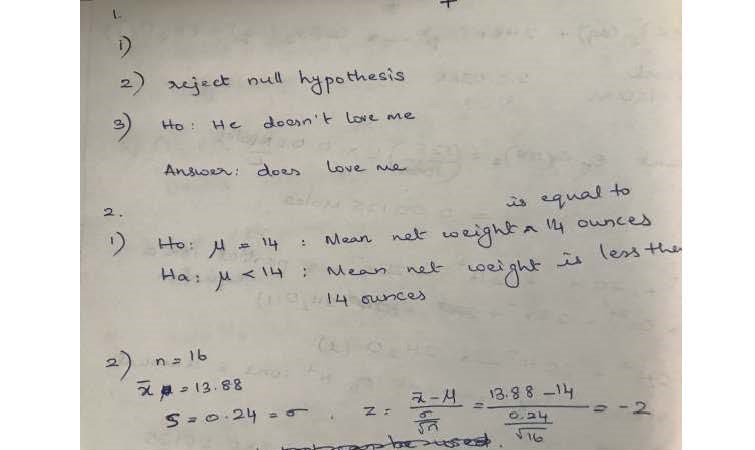 1.
i)
2) reject null hypothesis
3) Ho: He doesn't love me
Answer: does love me
2.
is equal to
1) Ho: μ = 14 : Mean net weight ^ 14 ounces
Ha: μ < 14 : Mean net weight is less the
14 ounces
2) n = 16
x̄ = 13.88
S = 0.24 = σ , Z = (x̄ - μ)/(σ/√n) = (13.88 - 14)/(0.24/√16) = -2